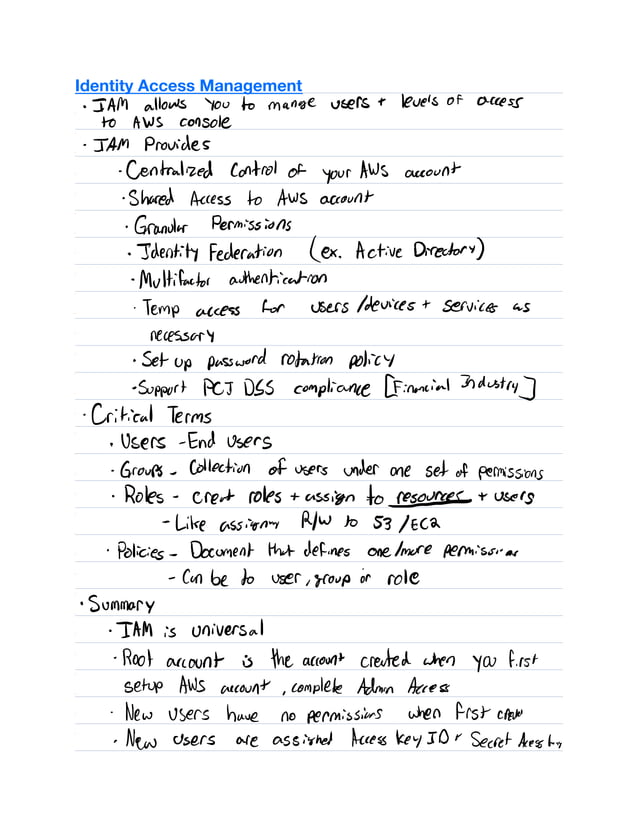 Identity Access Management
· IAM allows you to mange users + levels of access
to AWS console
· IAM Provides
· Centralized Control of your AWS account
· Shared Access to AWS account
· Granular Permissions
· Identity Federation (ex. Active Directory)
· Multifactor authentication
· Temp access for users/devices + services as
necessary
· Set up password rotation policy
· Support PCI DSS compliance [Financial Industry]
· Critical Terms
· Users - End Users
· Groups - Collection of users under one set of permissions
· Roles - creat roles + assign to resources + users
- Like assigning R/W to S3/EC2
· Policies - Document that defines one/more permissions
- Can be to user, group or role
· Summary
· IAM is universal
· Root account is the account created when you first
setup AWS account, complete Admin Access
· New Users have no permissions when first creat
· New users are assigned Access Key ID + Secret Access key